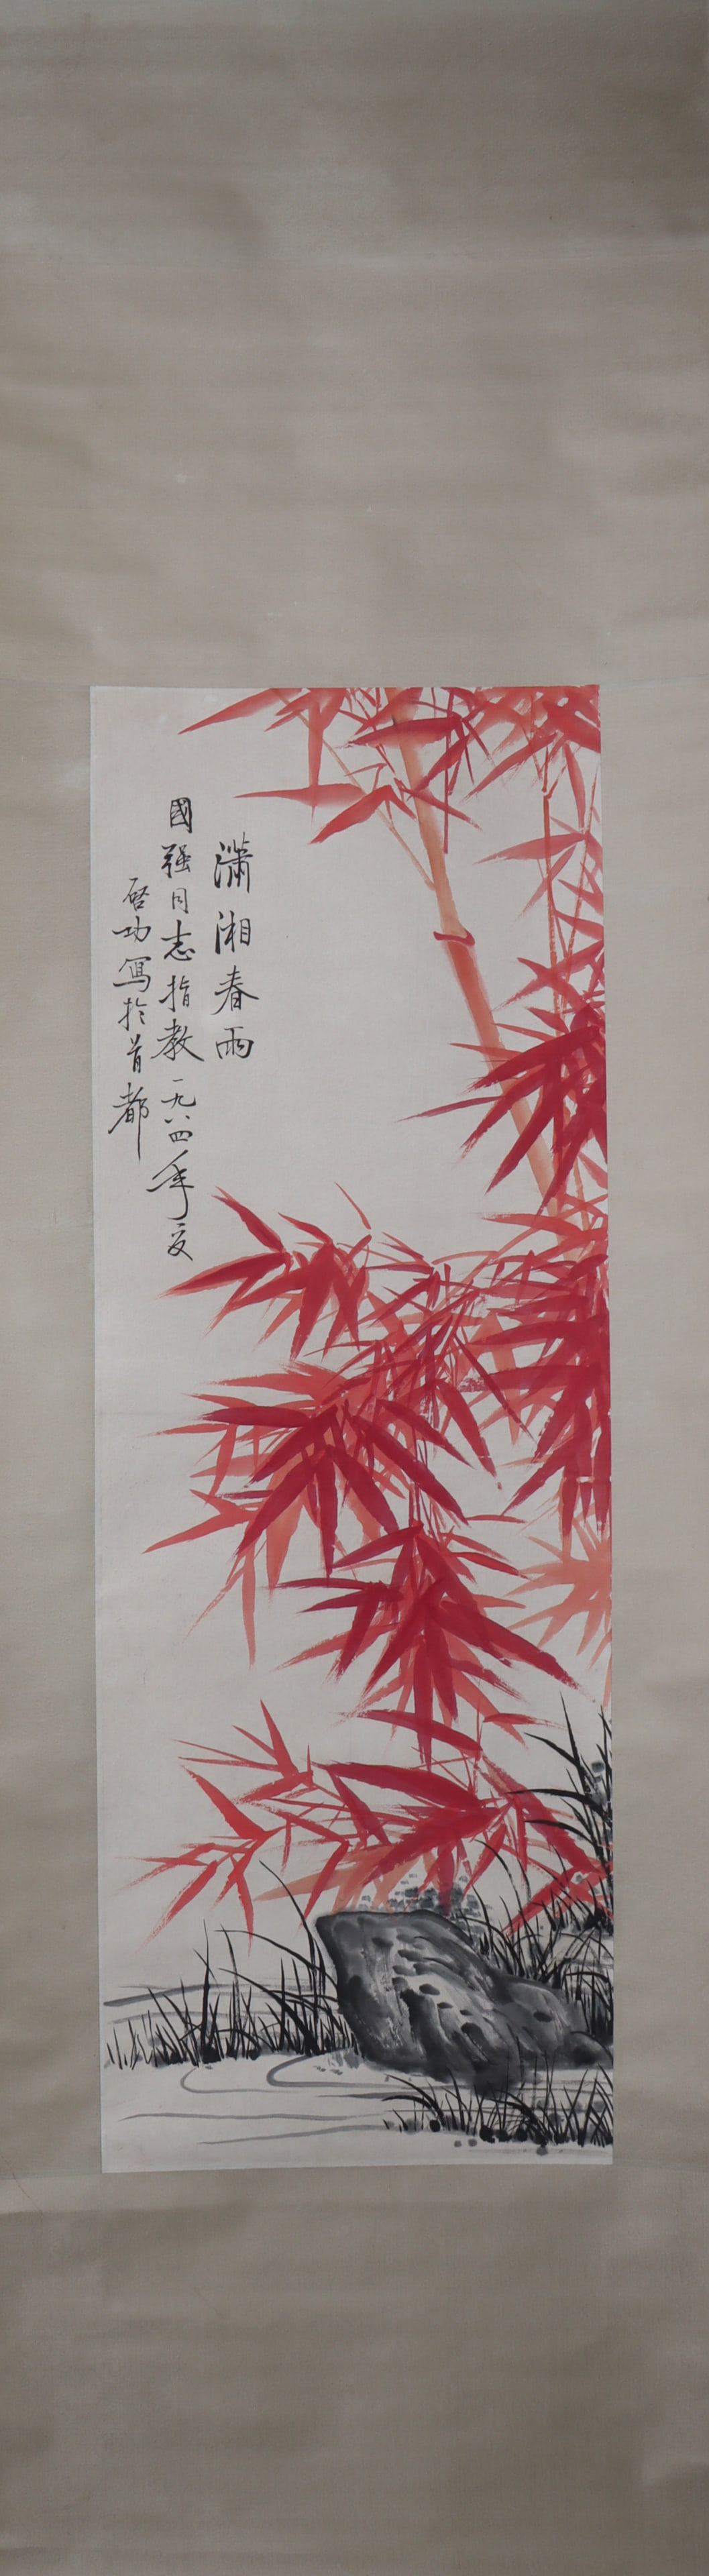 瀟湘春雨
國強同志指教一九八四年夏
啓功寫於首都